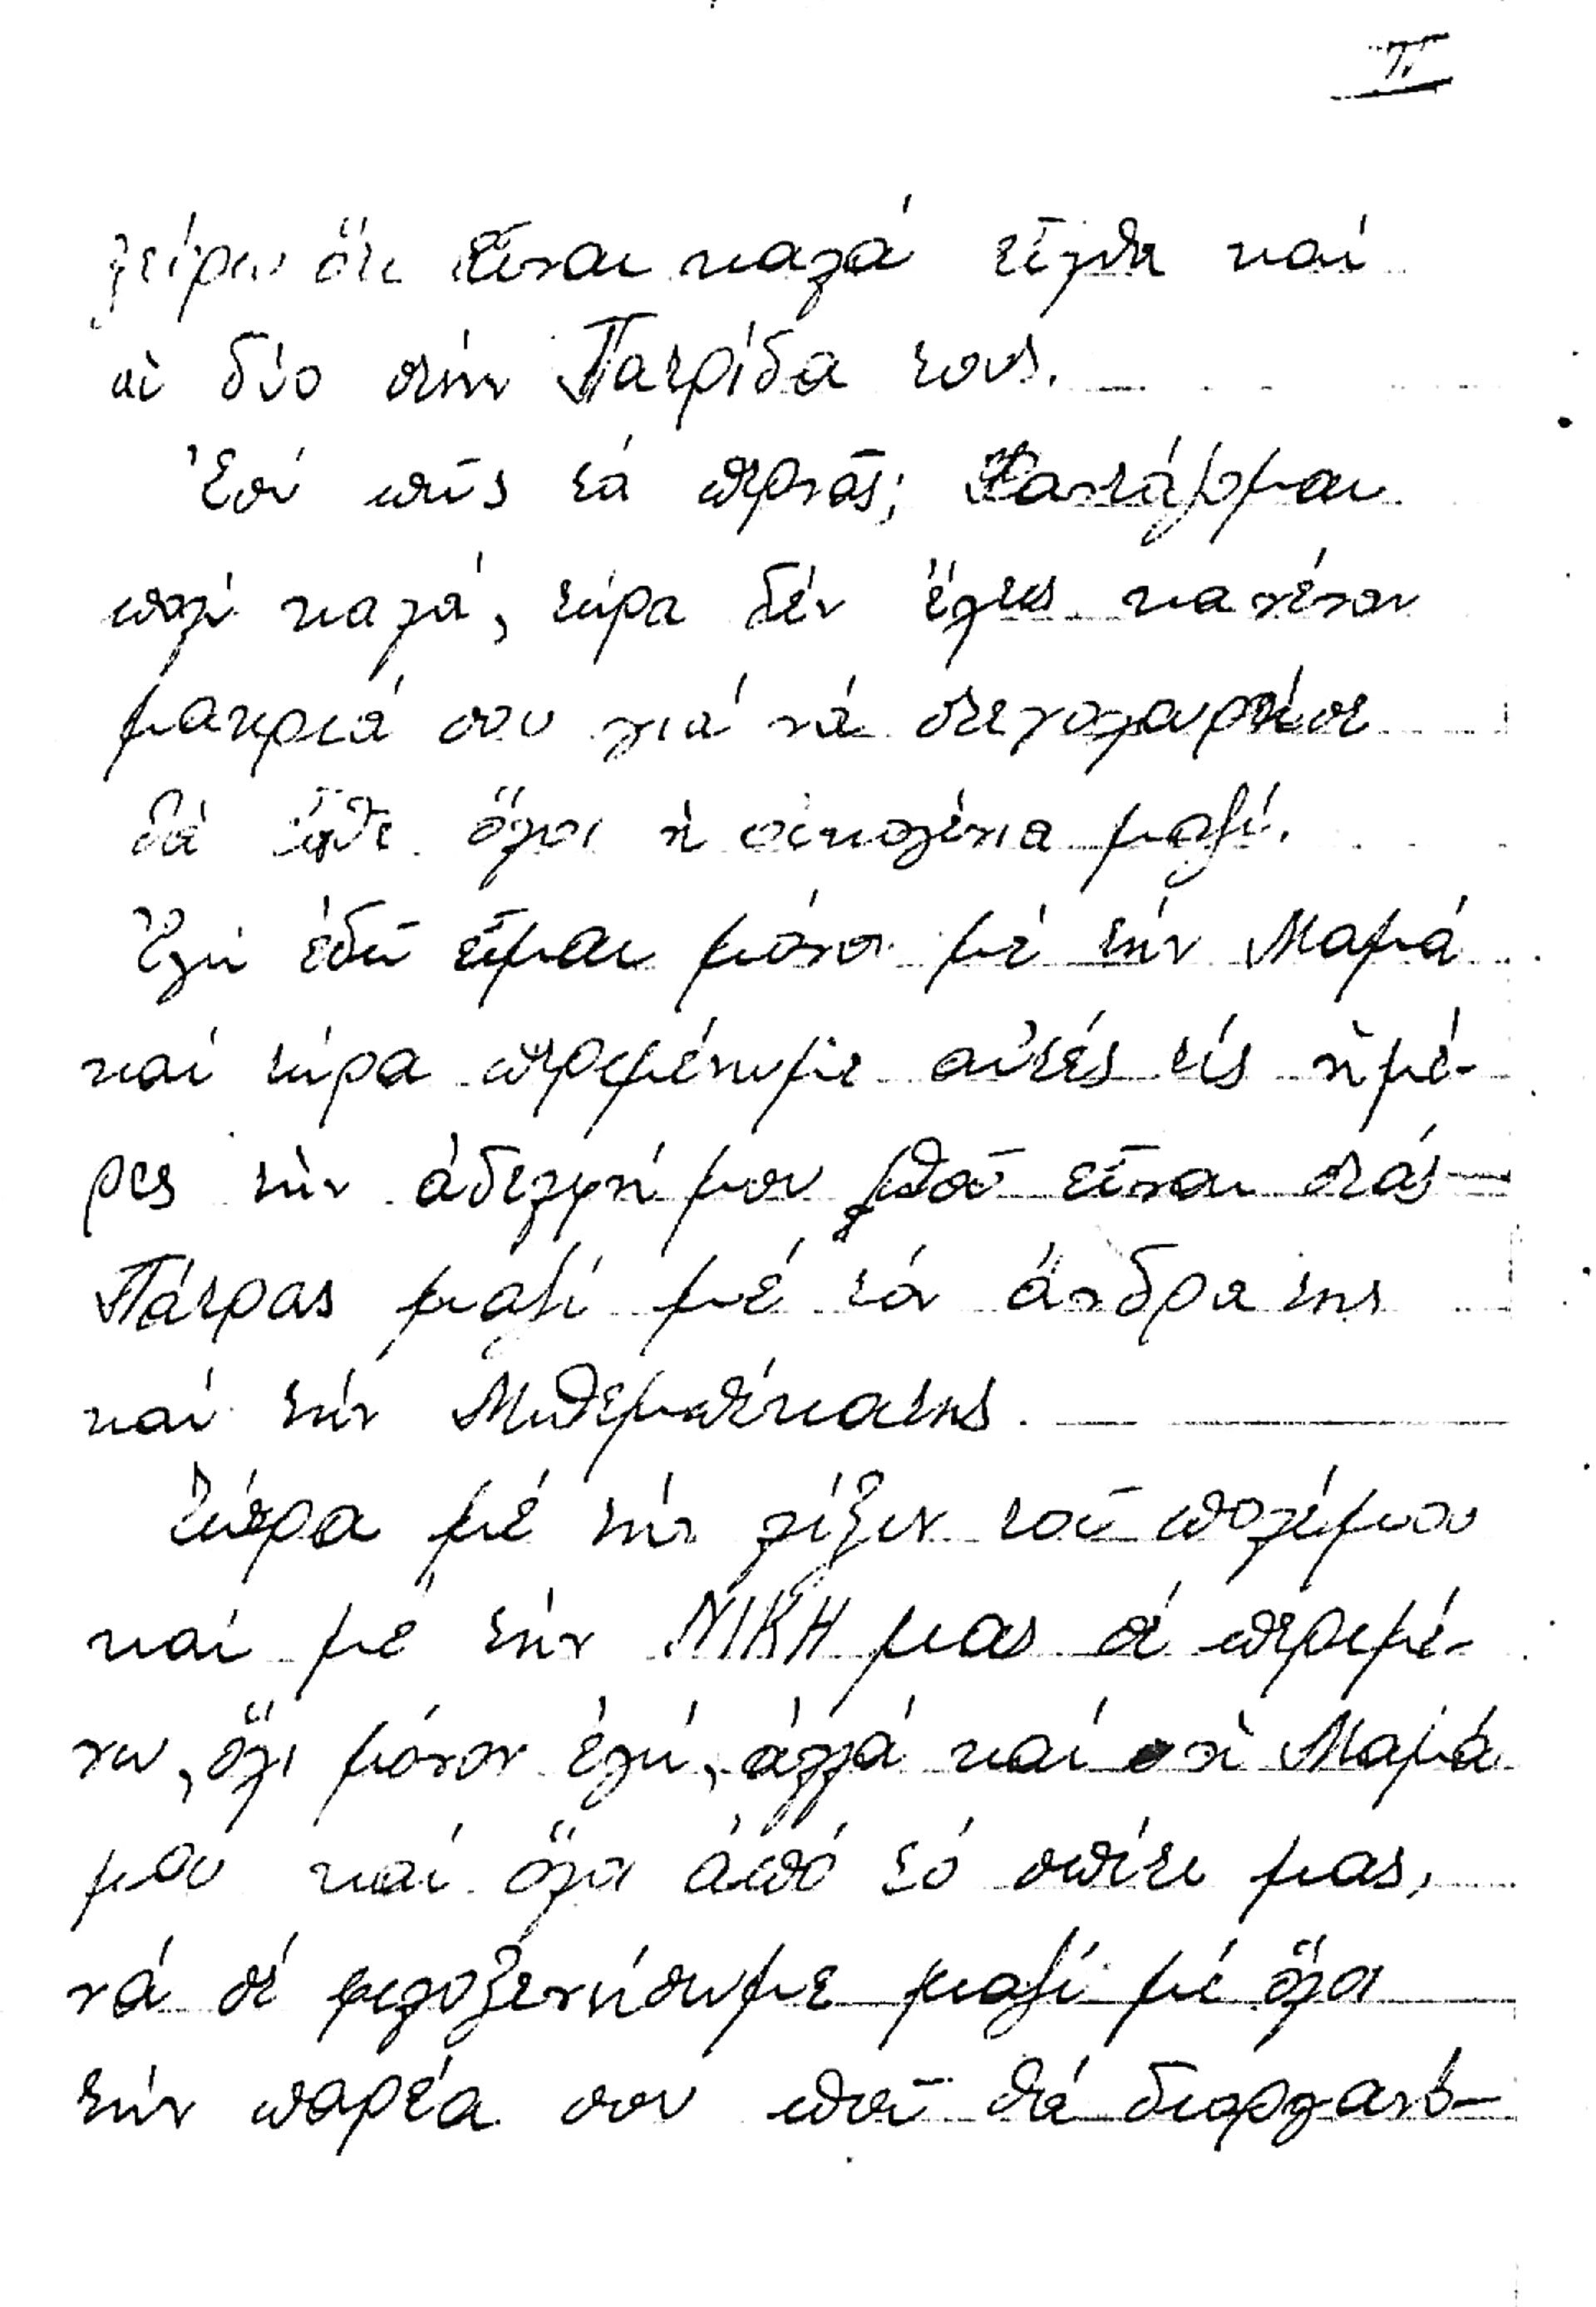 II
χαίρω ὅτι εἶναι καλά καί
οἱ δύο στήν Πατρίδα τους.
Ἐσύ πῶς τά περνᾶς; Φαντάζομαι
πολύ καλά, τώρα δέν ἔχεις κανέναν
μακριά σου γιά νά στενοχωρῆσαι
θά εἶσθε ὅλοι ἡ οἰκογένεια μαζί.
Ἐγώ ἐδῶ εἶμαι μόνοι μέ τήν Μαμά
καί τώρα περιμένωμε αὐτές τίς ἡμέ-
ρες τήν ἀδελφή μου ποῦ εἶναι στάς
Πάτρας μαζί μέ τόν ἄνδρα της
καί τήν Μπεμπέκα της.
Τώρα μέ τήν λήξιν τοῦ πολέμου
καί μέ τήν ΝΙΚΗ μας σέ περιμέ-
νω, ὄχι μόνον ἐγώ, ἀλλά καί ἡ Μαμά
μου καί ὅλοι ἀπό τό σπίτι μας,
νά σέ φιλοξενήσωμε μαζί μέ ὅλη
τήν παρέα σου ποῦ θά διοργανώ-